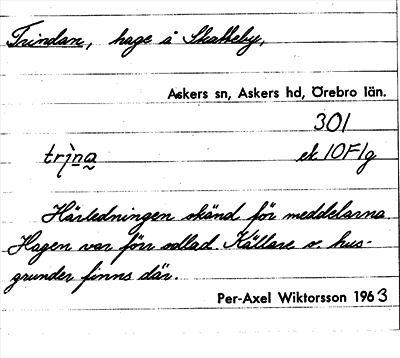 Trindan, hage å Skatteby,
Askers sn, Askers hd, Örebro län.
301
ek 10F1g
Härledningen okänd för meddelarna.
Hagen var förr odlad. Källare o. hus-
grunder finns där.
Per-Axel Wiktorsson 1963